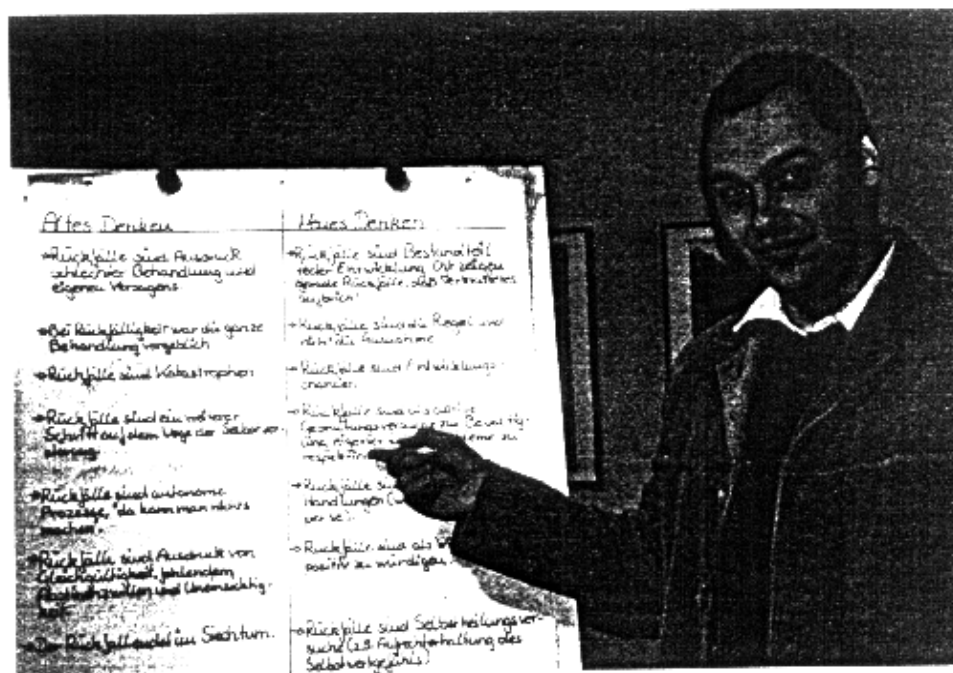 Altes Denken
Rückfälle sind Ausdruck
schlechter Behandlung und
eigenen Versagens.
Bei Rückfälligkeit war die ganze
Behandlung vergeblich
Rückfälle sind Katastrophen
Rückfälle sind ein weiterer
Schritt auf dem Wege der
Rückfälle sind autonome
Prozesse, "da kann man nichts
machen".
Rückfälle sind Ausdruck von
Gleichgültigkeit, fehlendem
und Uneinsichtig-
keit.
Der Rückfall endet im Siechtum.
Neues Denken
Rückfälle sind Bestandteil
jeder Entwicklung. Oft zeigen
gerade Rückfälle, daß
Rückfälle sind die Regel und
nicht die Ausnahme
Rückfälle sind Entwicklungs-
chancen.
Rückfälle sind als
Gestaltungsversuche zur
eigener zu
Rückfälle
Handlungen
Rückfälle sind als
positiv zu würdigen.
Rückfälle sind Selbstheilungsver-
suche (z.B. Aufrechterhaltung des